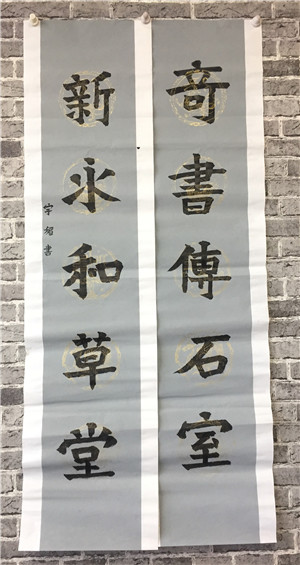 奇書傳石室
新永和草堂
宇翔書